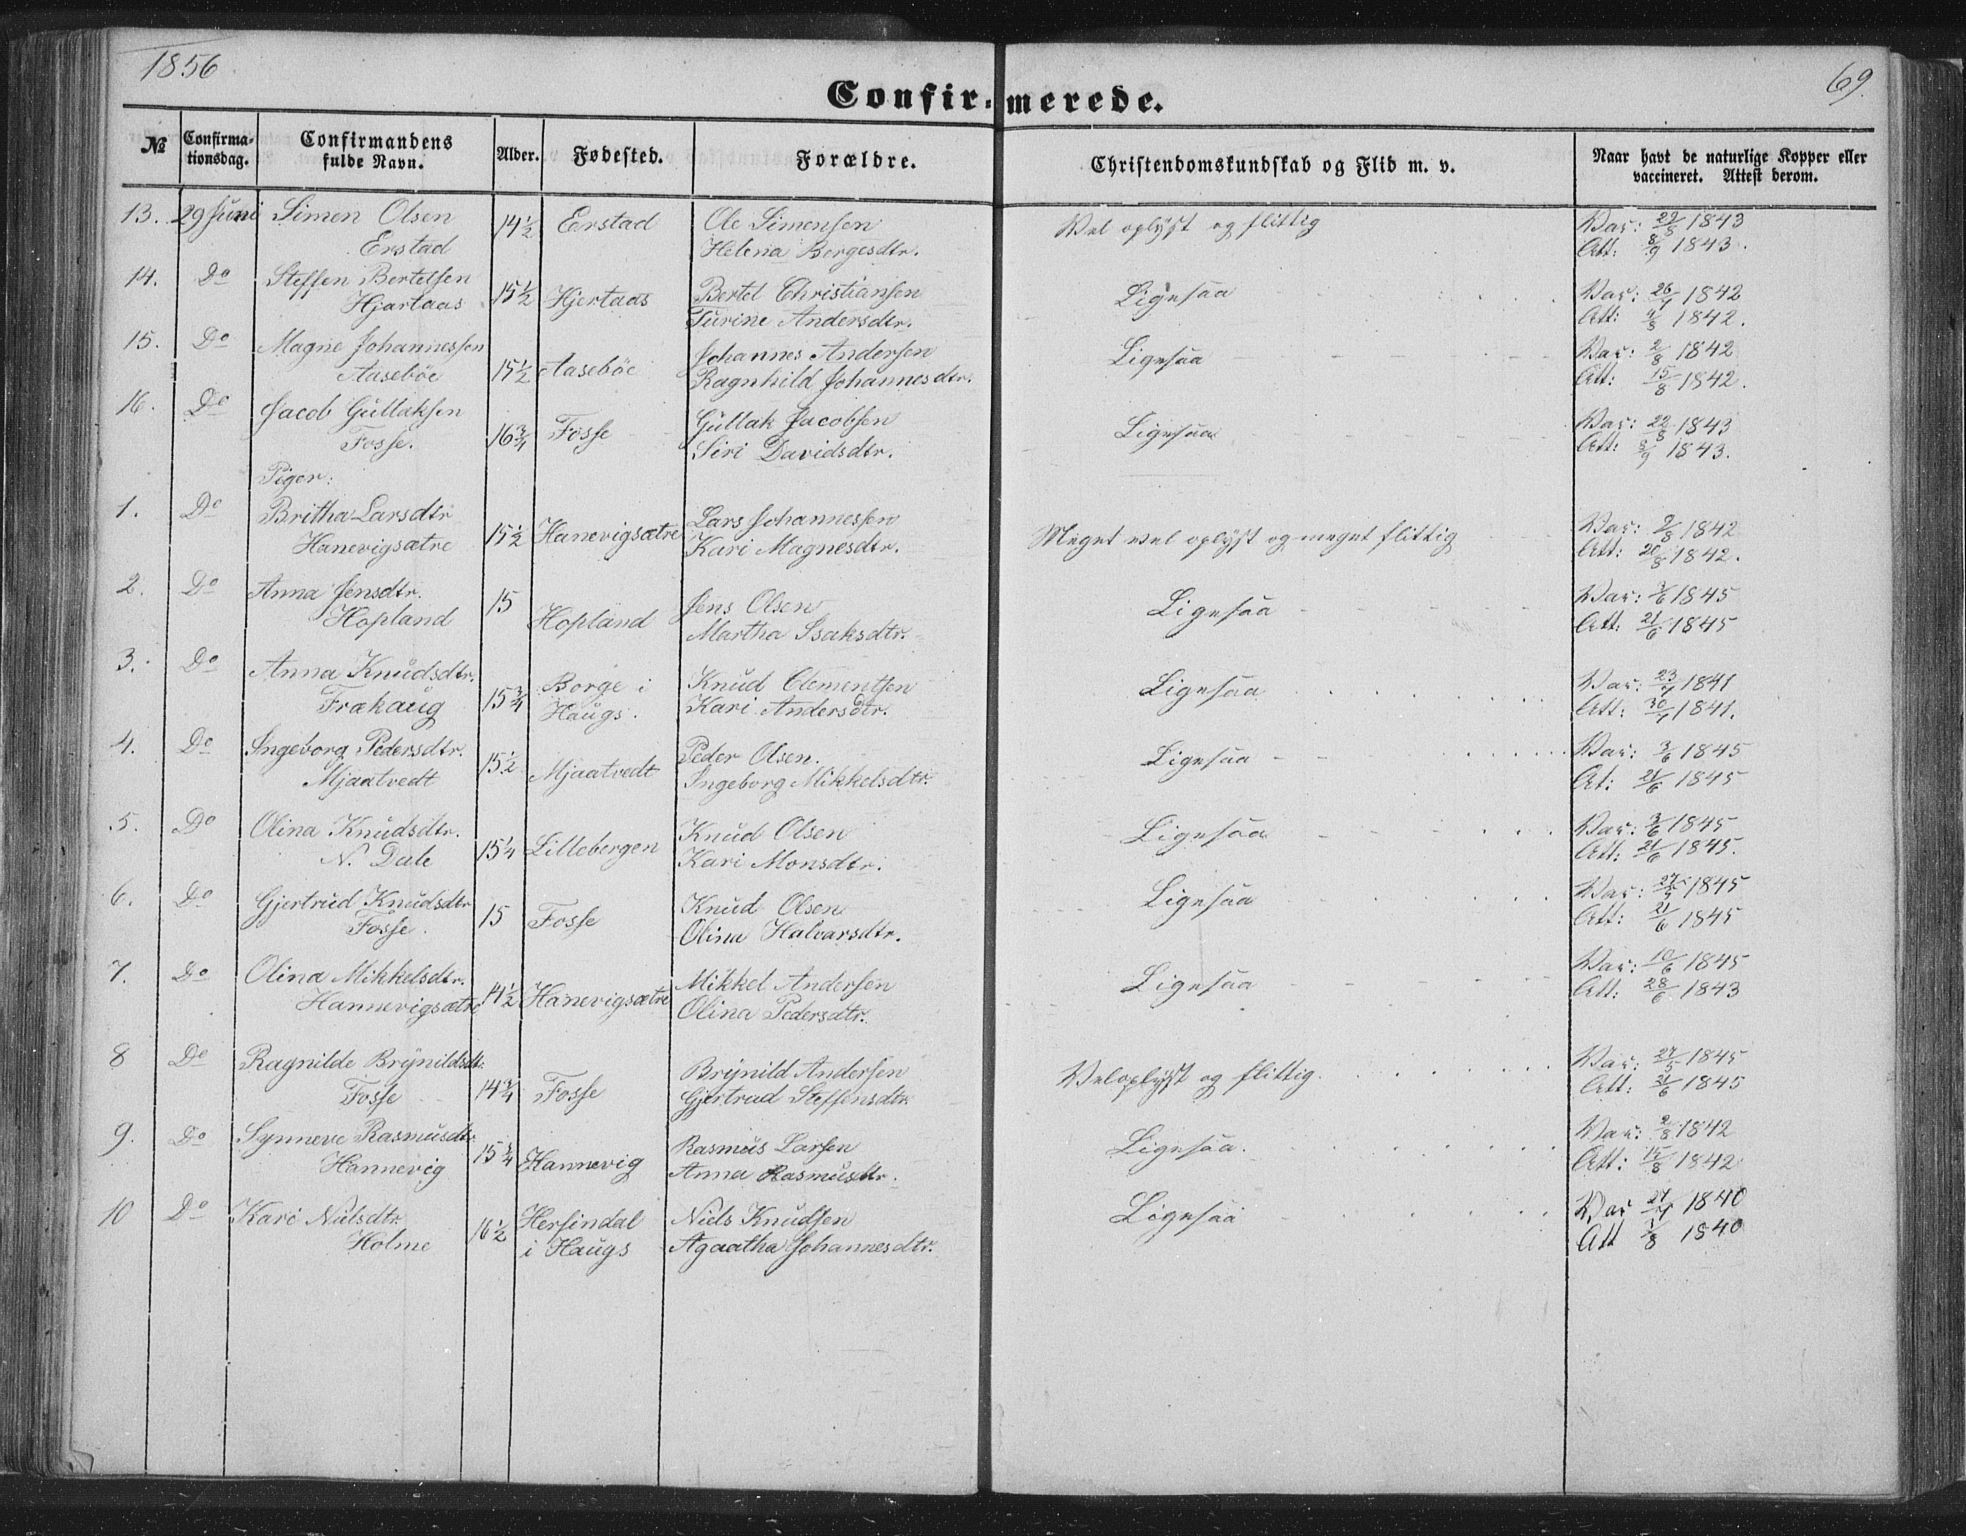 1856
69.
Confirmerede.
№
Confirmationsdag.
Confirmandens fulde Navn.
Alder.
Fødested.
Forældre.
Christendomskundskab og Flid m. v.
Naar havt de naturlige Kopper eller vaccineret. Attest derom.
13. 29 Juni Simen Olsen 14½ Erstad Ole Simensen Vel oplyst og flittig Vac: 22/8 1843
Erstad Helena Borgesdtr. Att: 8/9 1843.
14. Do Steffen Bertelsen 15½ Hjertaas Bertel Christiansen Ligesaa Vac: 26/7 1842
Hjartaas Turine Andersdtr. Att: 4/8 1842.
15. Do Magne Johannessen 15½ Aaseböe Johannes Andersen Ligesaa Vac: 2/8 1842
Aaseböe Ragnhild Johannesdtr. Att: 15/8 1842.
16. Do Jacob Gullaksen 16¾ Fosse Gullak Jacobsen Ligesaa Vac: 22/8 1843
Fosse. Siri Davidsdtr. Att: 8/9 1843.
Piger:
1. Do Britha Larsdtr 15½ Hanevigsætre Lars Johannessen Meget vel oplyst og meget flittig Vac: 2/8 1842
Hanevigsætre Kari Magnesdtr. Att: 20/8 1842.
2. Do Anna Jensdtr. 15 Hopland Jens Olsen Ligesaa Vac: 3/6 1845
Hopland Martha Isaksdtr. Att: 21/6 1845
3. Do Anna Knudsdtr. 15¾ Borge i Knud Clementsen Ligesaa Vac: 23/7 1841
Fræhaug Haugs. Kari Andersdtr. Att: 30/7 1841.
4. Do Ingeborg Pedersdtr. 15½ Mjaatvedt Peder Olsen. Ligesaa Vac: 3/6 1845
Mjaatvedt Ingeborg Mikkelsdtr. At: 21/6 1845
5. Do Olina Knudsdtr. 15¼ Lillebergen Knud Olsen Ligesaa Vac: 3/6 1845
N. Dale Kari Monsdtr. Att: 21/6 1845.
6. Do Gjertrud Knudsdtr 15 Fosse Knud Olsen Ligesaa Vac: 27/5 1845
Fosse. Olina Halvarsdtr. Att: 21/6 1845
7. Do Olina Mikkelsdtr. 14½ Hanevigsætre Mikkel Andersen Ligesaa Vac: 10/6 1845
Hannevigsætre Olina Pedersdtr. Att: 28/6 1843
8 Do Ragnilde Brynildsdtr. 14¾ Fosse Brynild Andersen Vel oplyst og flittig. Vac: 27/5 1845
Fosse Gjertrud Steffensdtr. Att: 21/6 1845
9. Do Synneve Rasmusdtr 15¼ Hannevig Rasmus Larsen Ligesaa. Vac: 2/8 1842
Hannevig Anna Rasmusdtr. Att: 15/8 1842
10 Do Kari Nielsdtr 16½ Hersindal Niels Knudsen Ligesaa Vac 24/7 1840
Holme i Haugs Agaatha Johannesdtr. Att 1/8 1840